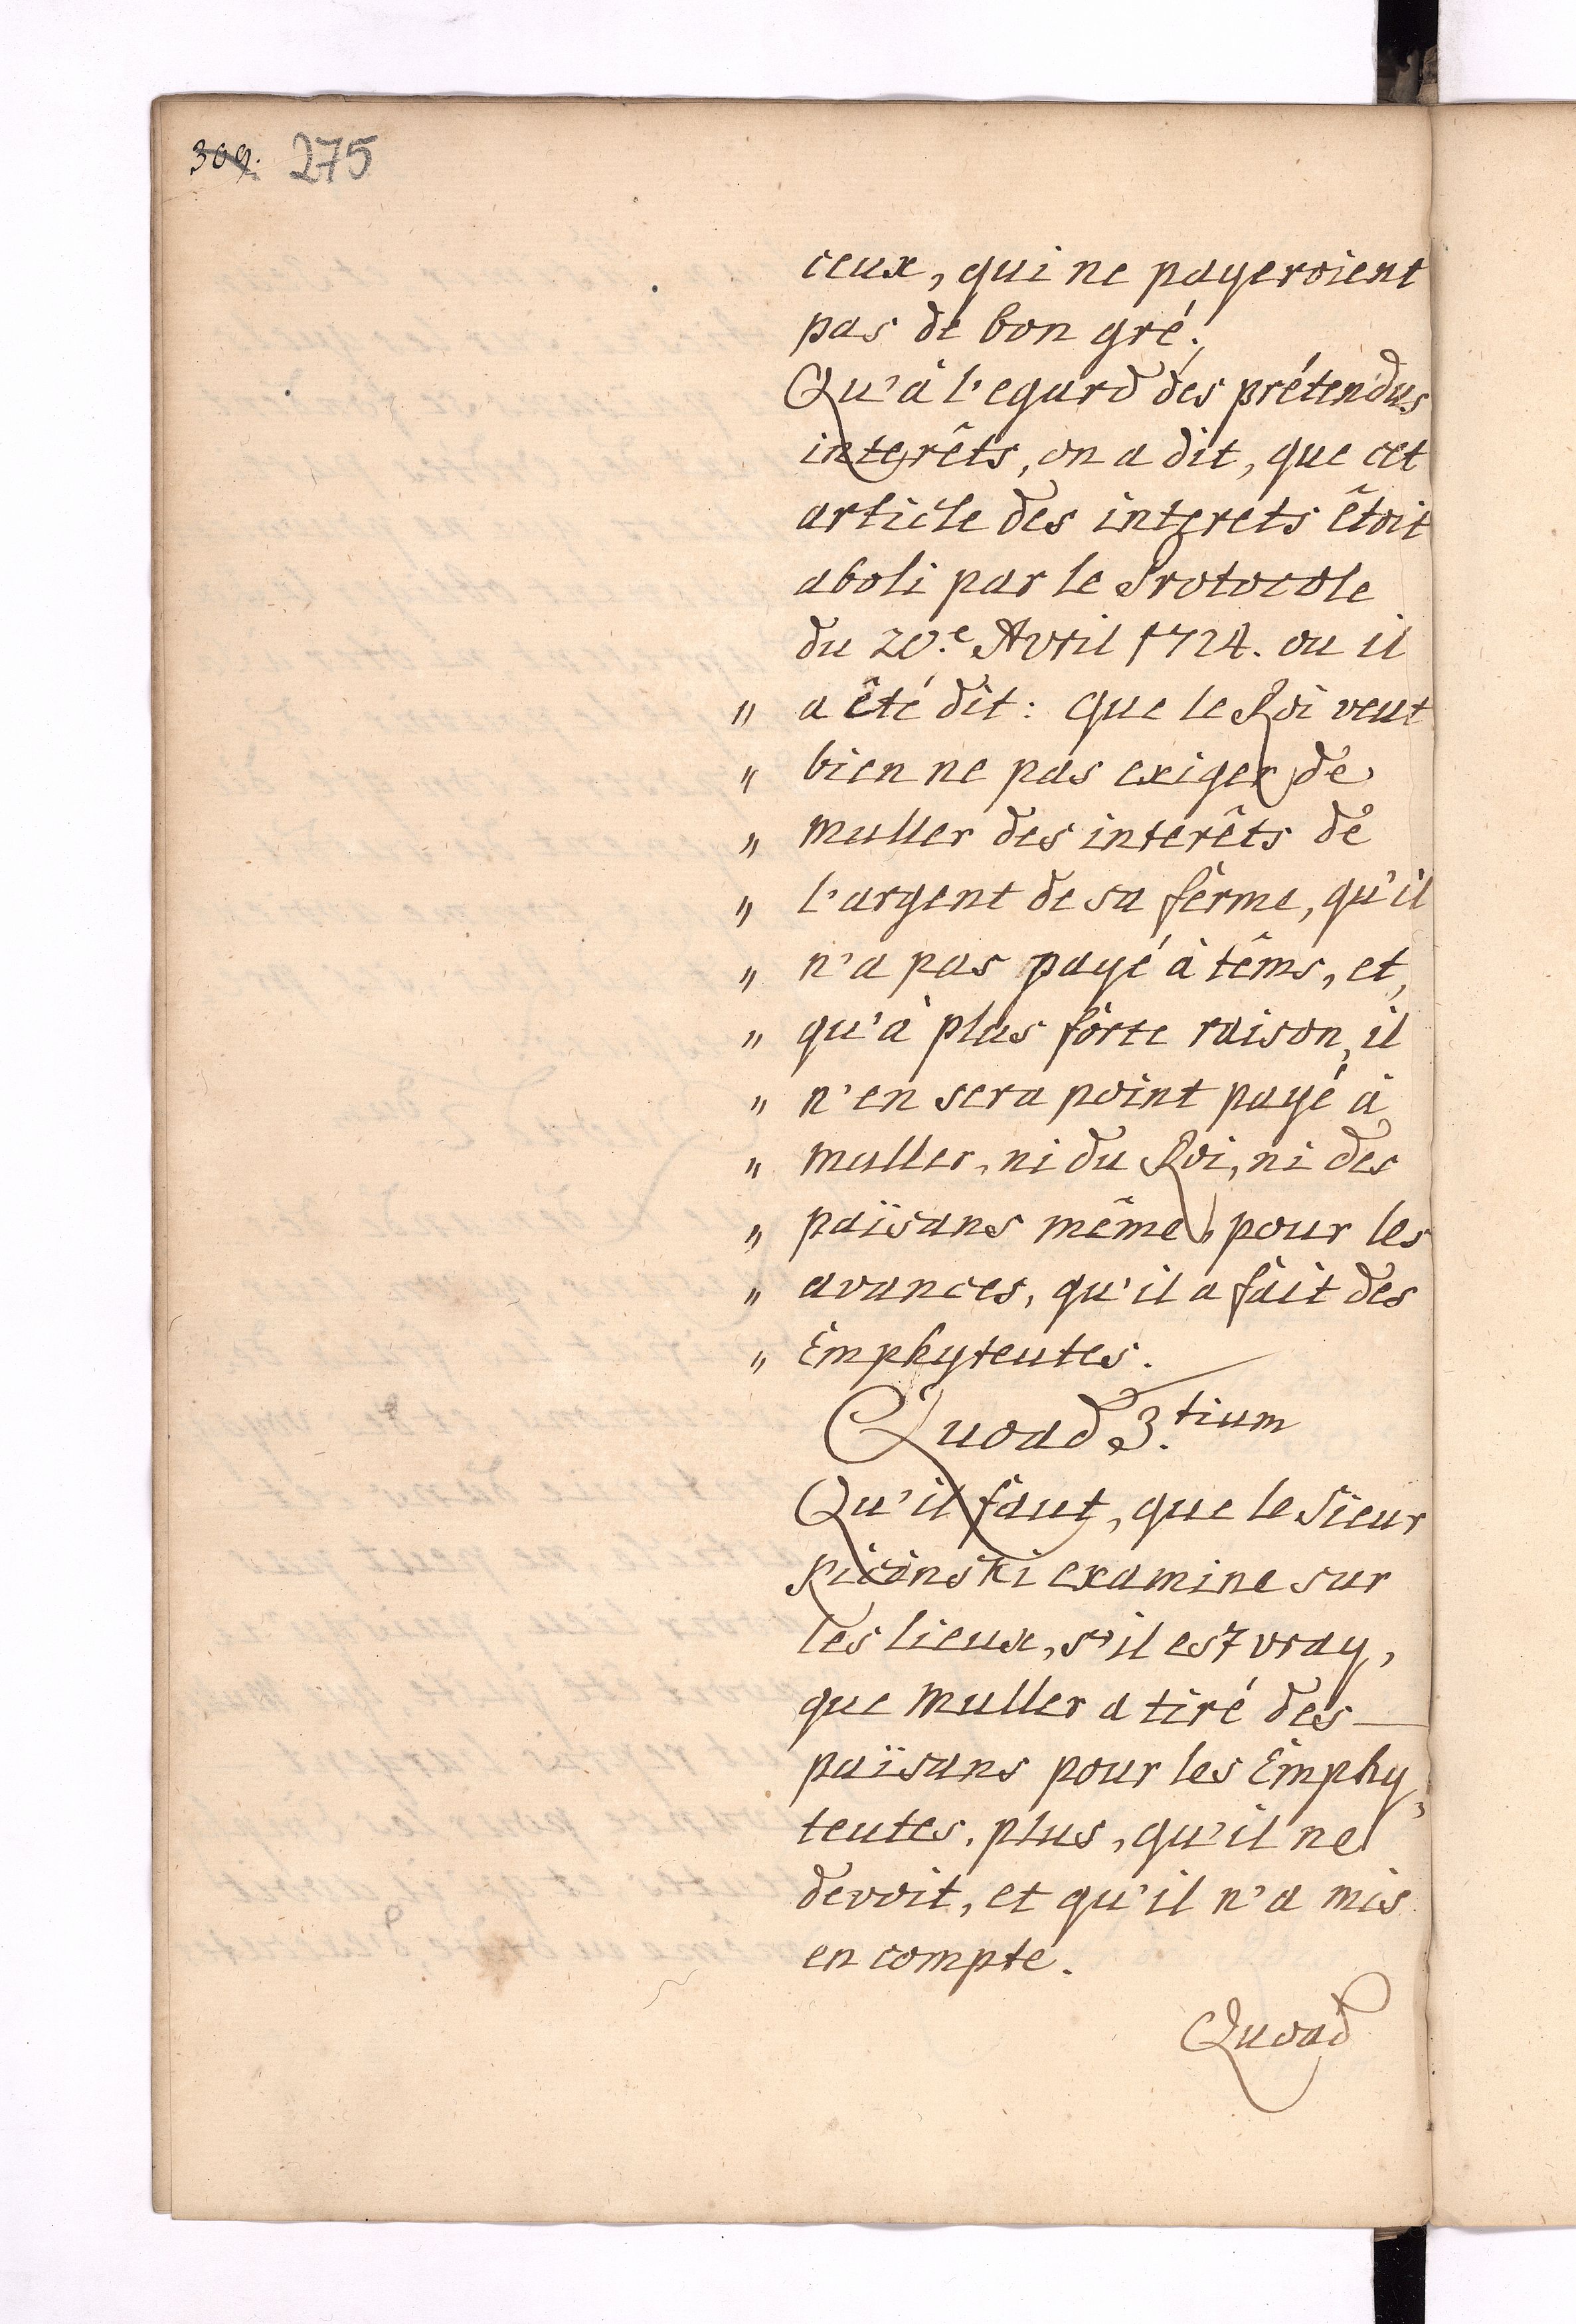 309. 275
ceux, qui ne payeroient
pas de bon gré.
Qu'à l'egard des prétendus
interêts, on a dit, que cet
article des interets êtoit
aboli par le Protocole
du 20.e Avril 1724. ou il
" a êté dit: que le Roi veut
" bien ne pas exiger de
" muller des interêts de
" l'argent de sa ferme, qu'il
" n'a pas payé à têms, et,
" qu'à plus forte raison, il
" n'en sera point payé à
" muller, ni du Roi, ni des
" païsans même, pour les
" avances, qu'il a fait des
" Emphyteutes.
Quoad 3.tium
Qu'il faut, que le Sieur
les lieux, s'il est vray,
que Muller a tiré des
païsans pour les Emphy„
teutes. plus, qu'il ne
devoit, et qu'il n'a mis
en compte.
Quoad